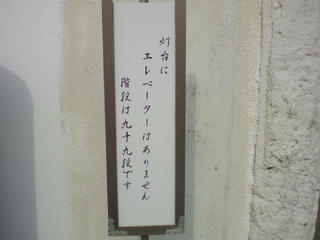 灯台に
エレベーターはありません
階段は九十九段です